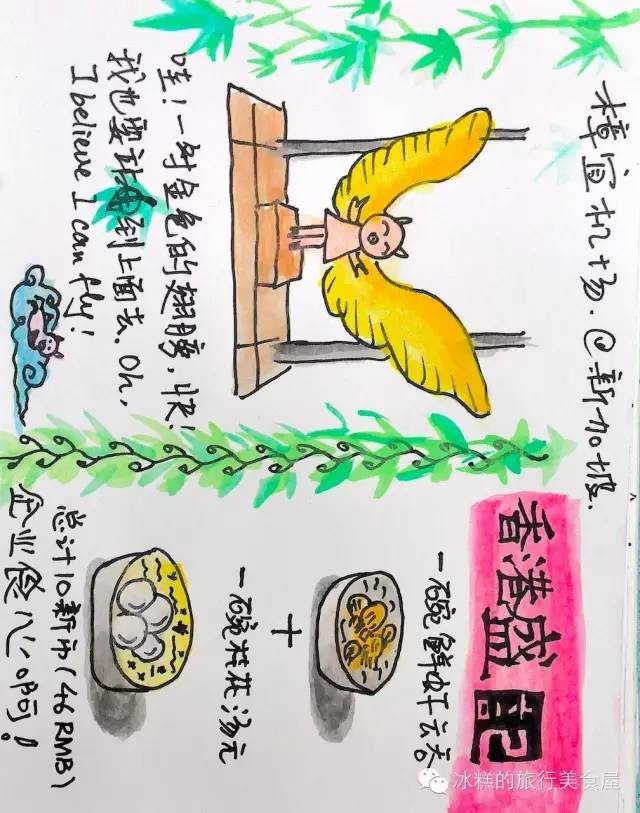 樟宜机场.@新加坡.
哇!一对金色的翅膀,快!
我也要站到上面去.Oh,
I believe I can fly!
香港盛记
一碗鲜虾云吞
+
一碗桂花汤元
总计10新币(46RMB)
企业食心啊!
冰糕的旅行美食屋